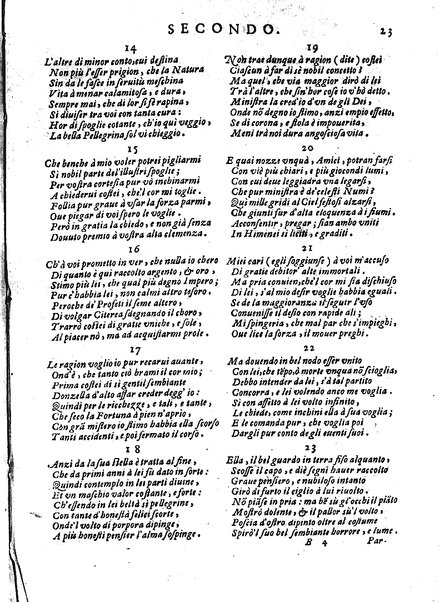 SECONDO. 23
14
L'altre di minor conto, cui destina
Non più l'esser prigion, che la Natura
Sin da le fasce in seruitù meschina
Vita à menar calamitosa, e dura,
Sempre mai, che di lor si fè rapina,
Si diuiser tra voi con tanta cura:
Hor di spoglie cotante, ch'io qui veggio,
La bella Pellegrina sol vi chieggio.
15
Che benche à mio voler potrei pigliarmi
Sì nobil parte del'illustri spoglie;
Per vostra cortesia pur vò inchinarmi
A chiederui costei, che'l cor mi toglie.
Follia pur graue à vsar la forza parmi,
Oue piegar di voi spero le voglie.
Però in gratia la chiedo, e non già senza
Douuto premio à vostra alta clemenza.
16
Ch'à voi prometto in ver, che nulla io chero
Di quanto è qui raccolto argento, & oro,
Stimo più lei, che qual più degno Impero;
Pur c'habbia lei, non calmi altro tesoro.
Peroche di Profeti il seme altero,
Di volgar Citerea sdegnando il choro,
Trarrò costei di gratie vniche, e sole,
Al piacer nò, ma ad acquistarmi prole.
17
Le ragion voglio io pur recarui auante,
Ond'è, che tanto ciò brami il cor mio;
Prima costei di sì gentil sembiante
Donzella d'alto affar creder degg'io:
Quindi per le ricchezze, e tali, e tante,
Che seco la Fortuna à pien n'aprio,
Con grā mistero io stimo habbia ella scorso
Tanti accidenti, e poi fermato il corso.
18
Anzi da la sua stella è tratta al fine,
Che da primi anni à lei fu dato in sorte:
Quindi contemplo in lei parti diuine,
Et vn maschio valor costante, e forte:
Ch'essendo in lei beltà sì pellegrine,
Con tante d'honestà felici scorte,
Onde'l volto di porpora dipinge,
A più honesti pensier l'alma sospinge.
19
Non trae dunque à ragion (dite) costei
Ciascun à far di sè nobil concetto?
Ma quel, che via maggior dirò di lei
Trà l'altre, che sin'hor cose io v'hò detto.
Ministra la cred'io d'vn degli Dei,
Onde nō degno io stimo, anzi empio effetto,
Se di corona, e stola è impouerita,
Meni trà noi dura angosciosa vita.
20
E quai nozze vnquà, Amici, potran farsi
Con viè più chiari, e più giocondi lumi,
Con cui deue leggiadra vna legarsi,
Che pur ministra è de'celesti Numi?
Quì mille gridi al Ciel festosi alzarsi,
Che giunti fur d'alta eloquenza à i fiumi,
Acconsentir, pregar; sian ambo vniti
In Himenei sì lieti, e graditi.
21
Miei cari (egli soggiunse) à voi m'accuso
Di gratie debitor alte immortali.
Ma pria conuien, ch'el cor mi sia dischiuso
Di lei, s'al mio desir voglie habbia eguali.
Se de la maggioranza il seguir l'vso
Conuenisse il desio con rapide ali;
Mi spingeria, che mal par che s'impieghi,
Oue lice la forza, il mouer prieghi.
22
Ma douendo in bel nodo esser vnito
Con lei, che tēpo, ò morte vnquà nō scioglia,
Debbo intender da lei, s'à tal partito
Concorra, e lei volendo anco me voglia.
Sì con affetto à lei volto infinito,
Le chiede, come inchini ella à sua voglia;
E le comanda pur, che voglia poi
Dargli pur conto degli euenti suoi.
23
Ella, il bel guardo in terra fiso alquanto,
Scosse il capo, e diè segni hauer raccolto
Graue pensiero, e nubiloso intanto
Girò di furto il ciglio à lui riuolto.
Nō piāse in pria: ma bē sù gl'occhi il piāto
Mostrò dolente, & il pallor sù'l volto,
Poscia d'ostro dipinto oltre al costume
Spirò'l suo bel sembiante horrore, e lume.
B 4 Par-